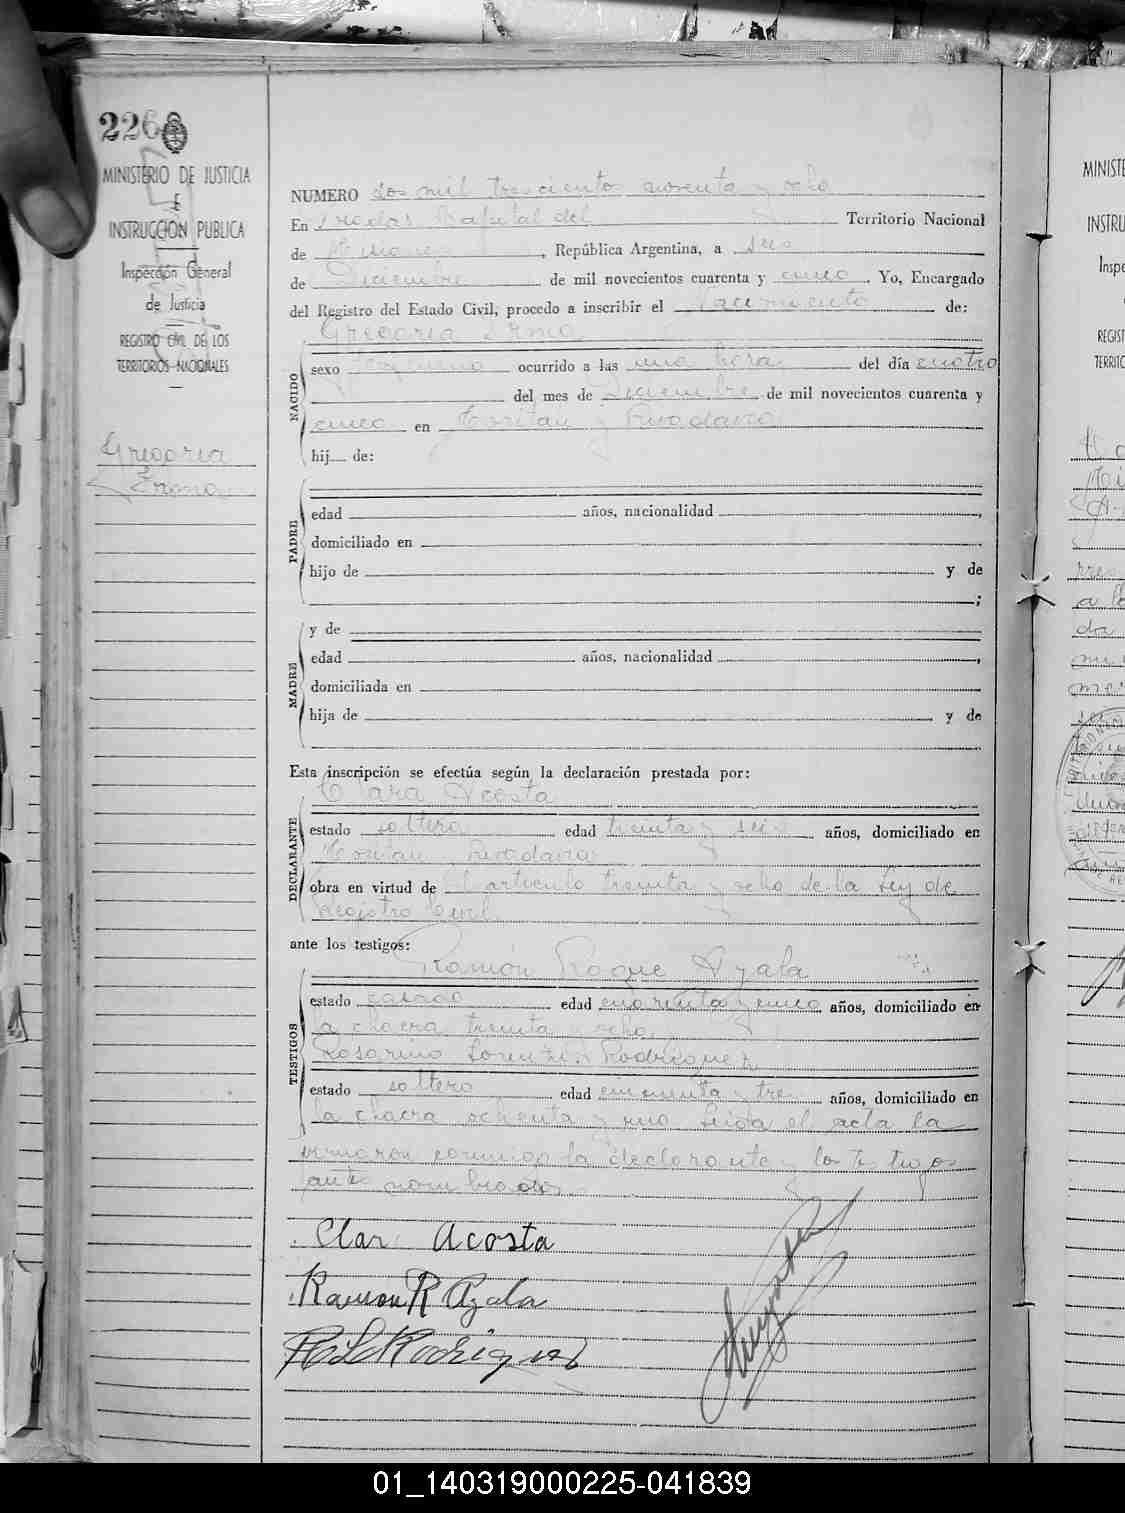 226
MINISTERIO DE JUSTICIA
E
INSTRUCCION PUBLICA
Inspección General
de Justicia
REGISTRO CIVIL DE LOS
TERRITORIOS NACIONALES
Gregoria
Irma
NUMERO dos mil trescientos noventa y ocho
En Posadas Capital del Territorio Nacional
de Misiones, República Argentina, a seis
de Diciembre de mil novecientos cuarenta y cinco, Yo, Encargado
del Registro del Estado Civil, procedo a inscribir el Nacimiento de:
Gregoria Irma
NACIDO
sexo femenino ocurrido a las una hora del día cuatro
del mes de Diciembre de mil novecientos cuarenta y
cinco en y Rivadavia
hij de:
PADRE
edad años, nacionalidad ,
domiciliado en
hijo de y de
;
MADRE
y de
edad años, nacionalidad ,
domiciliada en
hija de y de
Esta inscripción se efectúa según la declaración prestada por:
Clara Acosta
DECLARANTE
estado soltera edad treinta y seis años, domiciliado en
Rivadavia
obra en virtud de el artículo treinta y ocho de la Ley de
Registro Civil
ante los testigos:
Ramón Roque Ayala
TESTIGOS
estado casado edad cuarenta y cinco años, domiciliado en
la chacra treinta y ocho
Rosarino Rodriguez
estado soltero edad cincuenta y tres años, domiciliado en
la chacra ochenta y uno Leida el acta la
firmaron conmigo la declarante y los testigos
antes nombrados
Clara Acosta
Ramon R Ayala
Rodriguez
MINISTE
INSTRU
Inspe
REGIST
TERRITO
01_140319000225-041839